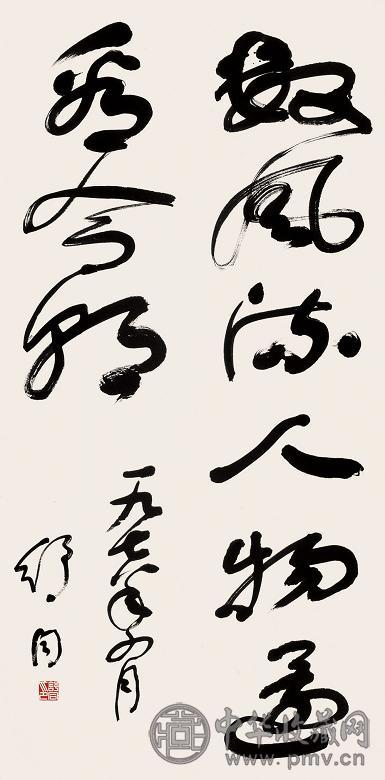 数风流人物还
看今朝
一九七八年四月
舒同
中华收藏网
www.pmv.cn